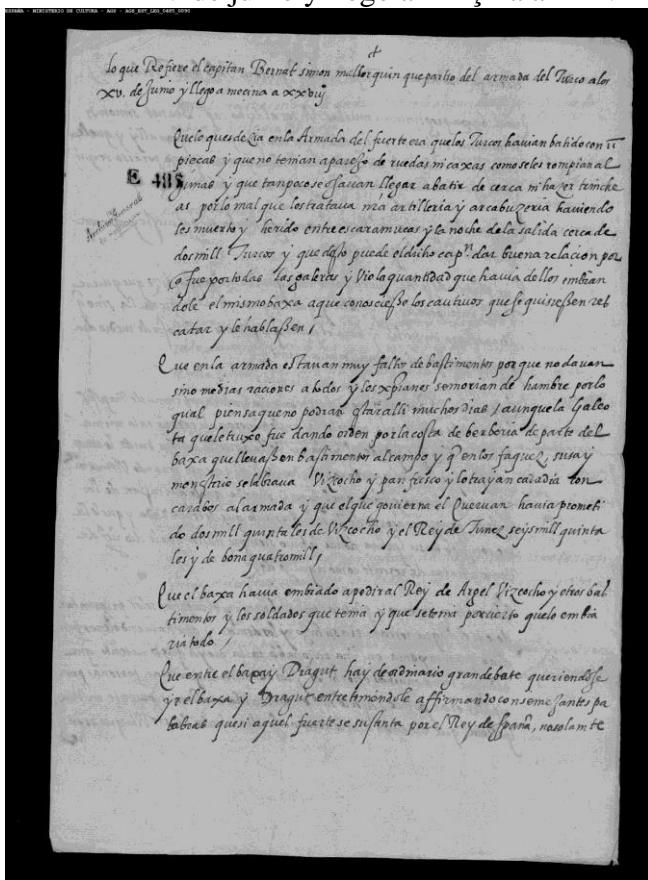 ESPAÑA - MINISTERIO DE CULTURA - AGS - AGS_EST_LEG_0485_0090
lo que Refiere el capitan Bernat simon mallorquin que partio del armada del Turco a los
xv. de Junio y llego a mecina a xxviij
Que lo que se dezia en la Armada del fuerte era que los Turcos havian batido con ii
pieças y que no tenian aparejo de ruedas ni caxas como se les rompian al
gunas y que tanpoco se osavan llegar a batir de cerca ni hazer trinche
as por lo mal que los tratava nra artilleria y arcabuzeria haviendo
les muerto y herido entre escaramuças y la noche de la salida cerca de
dos mill Turcos y que desto puede el dicho capn dar buena relacion por
q fue por todas las galeras y Vio la quantidad que havia dellos embian
dole el mismo baxa a que conosciesse los cautivos que se quisiessen res
catar y le hablassen /
E 485
Que en la armada estavan muy faltos de bastimentos por que no davan
sino medias raciones a todos y los xpianos se morian de hambre por lo
qual piensa que no podran estar alli muchos dias / aunque la Galeo
ta que le truxo fue dando orden por la costa de berberia de parte del
baxa que llevassen bastimentos al campo y q en los faquez, susa y
monesterio se labrava Vizcocho y pan fresco y lo trayan cada dia con
carabos al armada y que el que govierna el Quervan havia prometi
do dos mill quintales de Vizcocho y el Rey de Tunez seys mill quinta
les y de bona quatro mill /
Que el baxa havia embiado a pedir al Rey de Argel Vizcocho y otros bas
timentos y los soldados que tenia y que se tenia por cierto que lo embia
ria todo /
Que entre el baxa y Dragut hay de ordinario gran debate queriendose
yr el baxa y Dragut entreteniendole affirmando con semejantes pa
labras que si aquel fuerte se sustenta por el Rey de spaña, no solamte